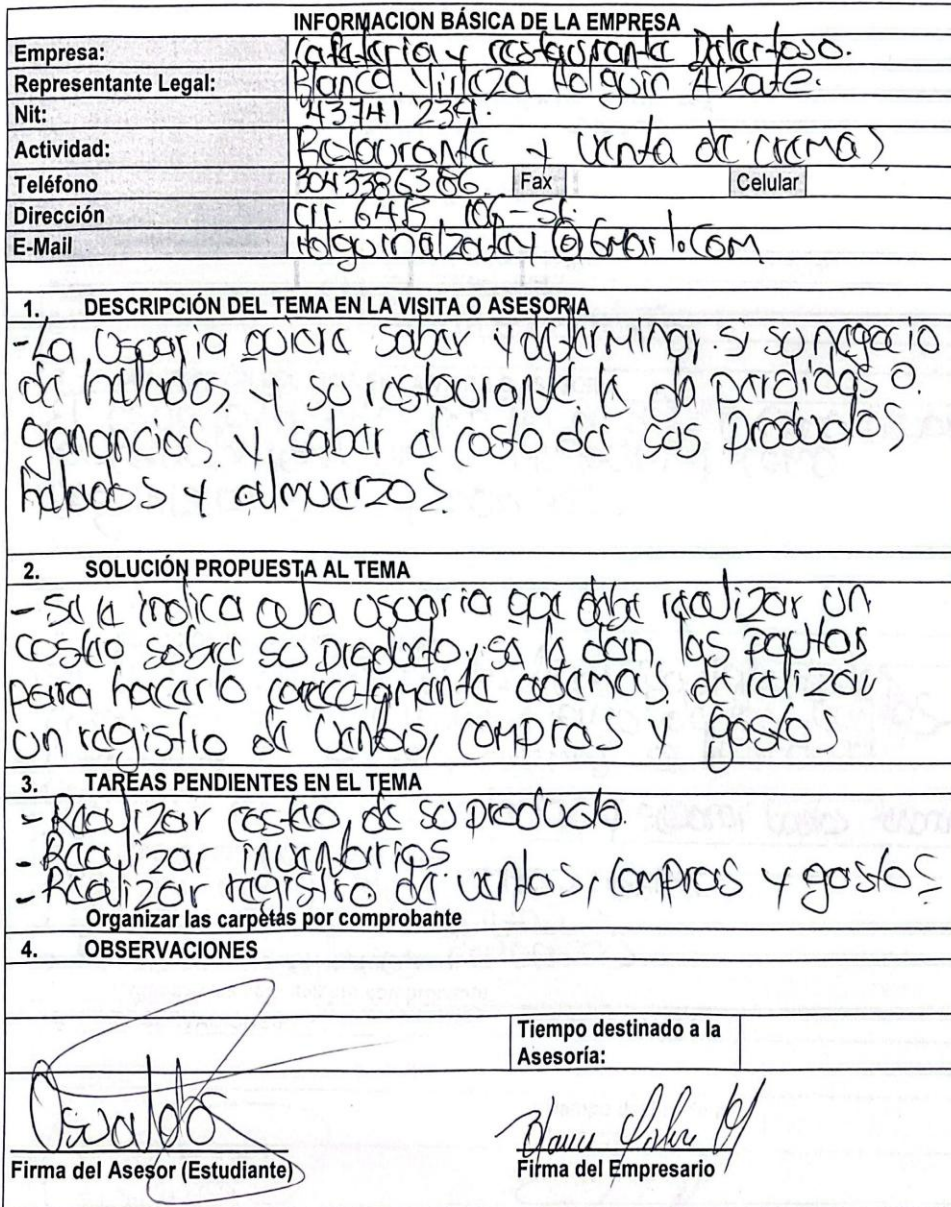 INFORMACION BÁSICA DE LA EMPRESA
Empresa: Cafeteria y restaurante Delertoso.
Representante Legal: Blanca Holguin Alzate.
Nit: 43741239.
Actividad: Restaurante y venta de cremas
Teléfono 3043386386 Fax Celular
Dirección
E-Mail Holguinalzatey@Gmail.Com
1. DESCRIPCIÓN DEL TEMA EN LA VISITA O ASESORIA
-La Usuaria quiere saber y determinar si su negocio
de helados y su restaurante le da perdidas o
ganancias y saber el costo de sus productos
helados y almuerzos
2. SOLUCIÓN PROPUESTA AL TEMA
- Se le indica a la usuaria que debe realizar un
costeo sobre su producto, se le dan las pautas
para hacerlo correctamente ademas de relizar
un registro de ventas, compras y gastos
3. TAREAS PENDIENTES EN EL TEMA
- Realizar costeo, de su producto.
- Realizar inventarios
- Realizar registro de ventas, compras y gastos
Organizar las carpetas por comprobante
4. OBSERVACIONES
Tiempo destinado a la
Asesoría:
Osvaldo
Firma del Asesor (Estudiante)
Firma del Empresario